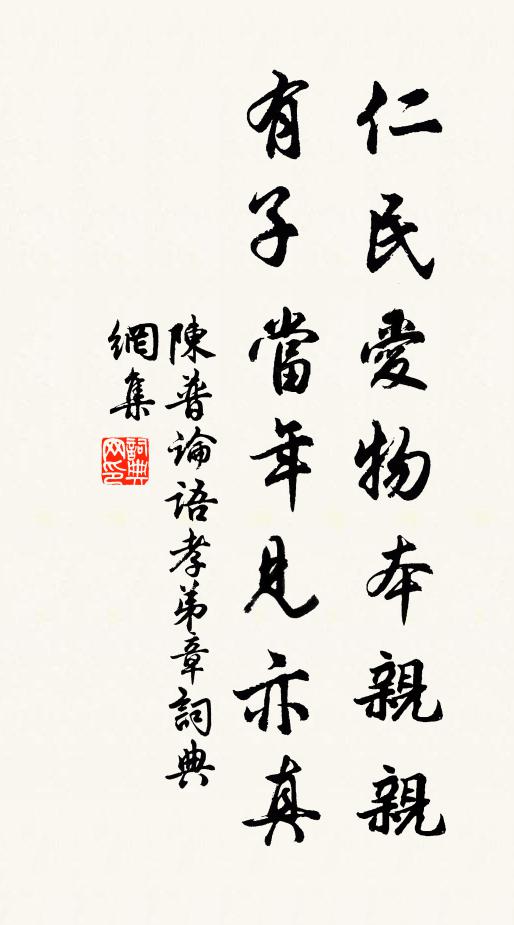 仁民愛物本親親
有子當年見亦真
陳普論語孝弟章詞典
網集
詞典
网印